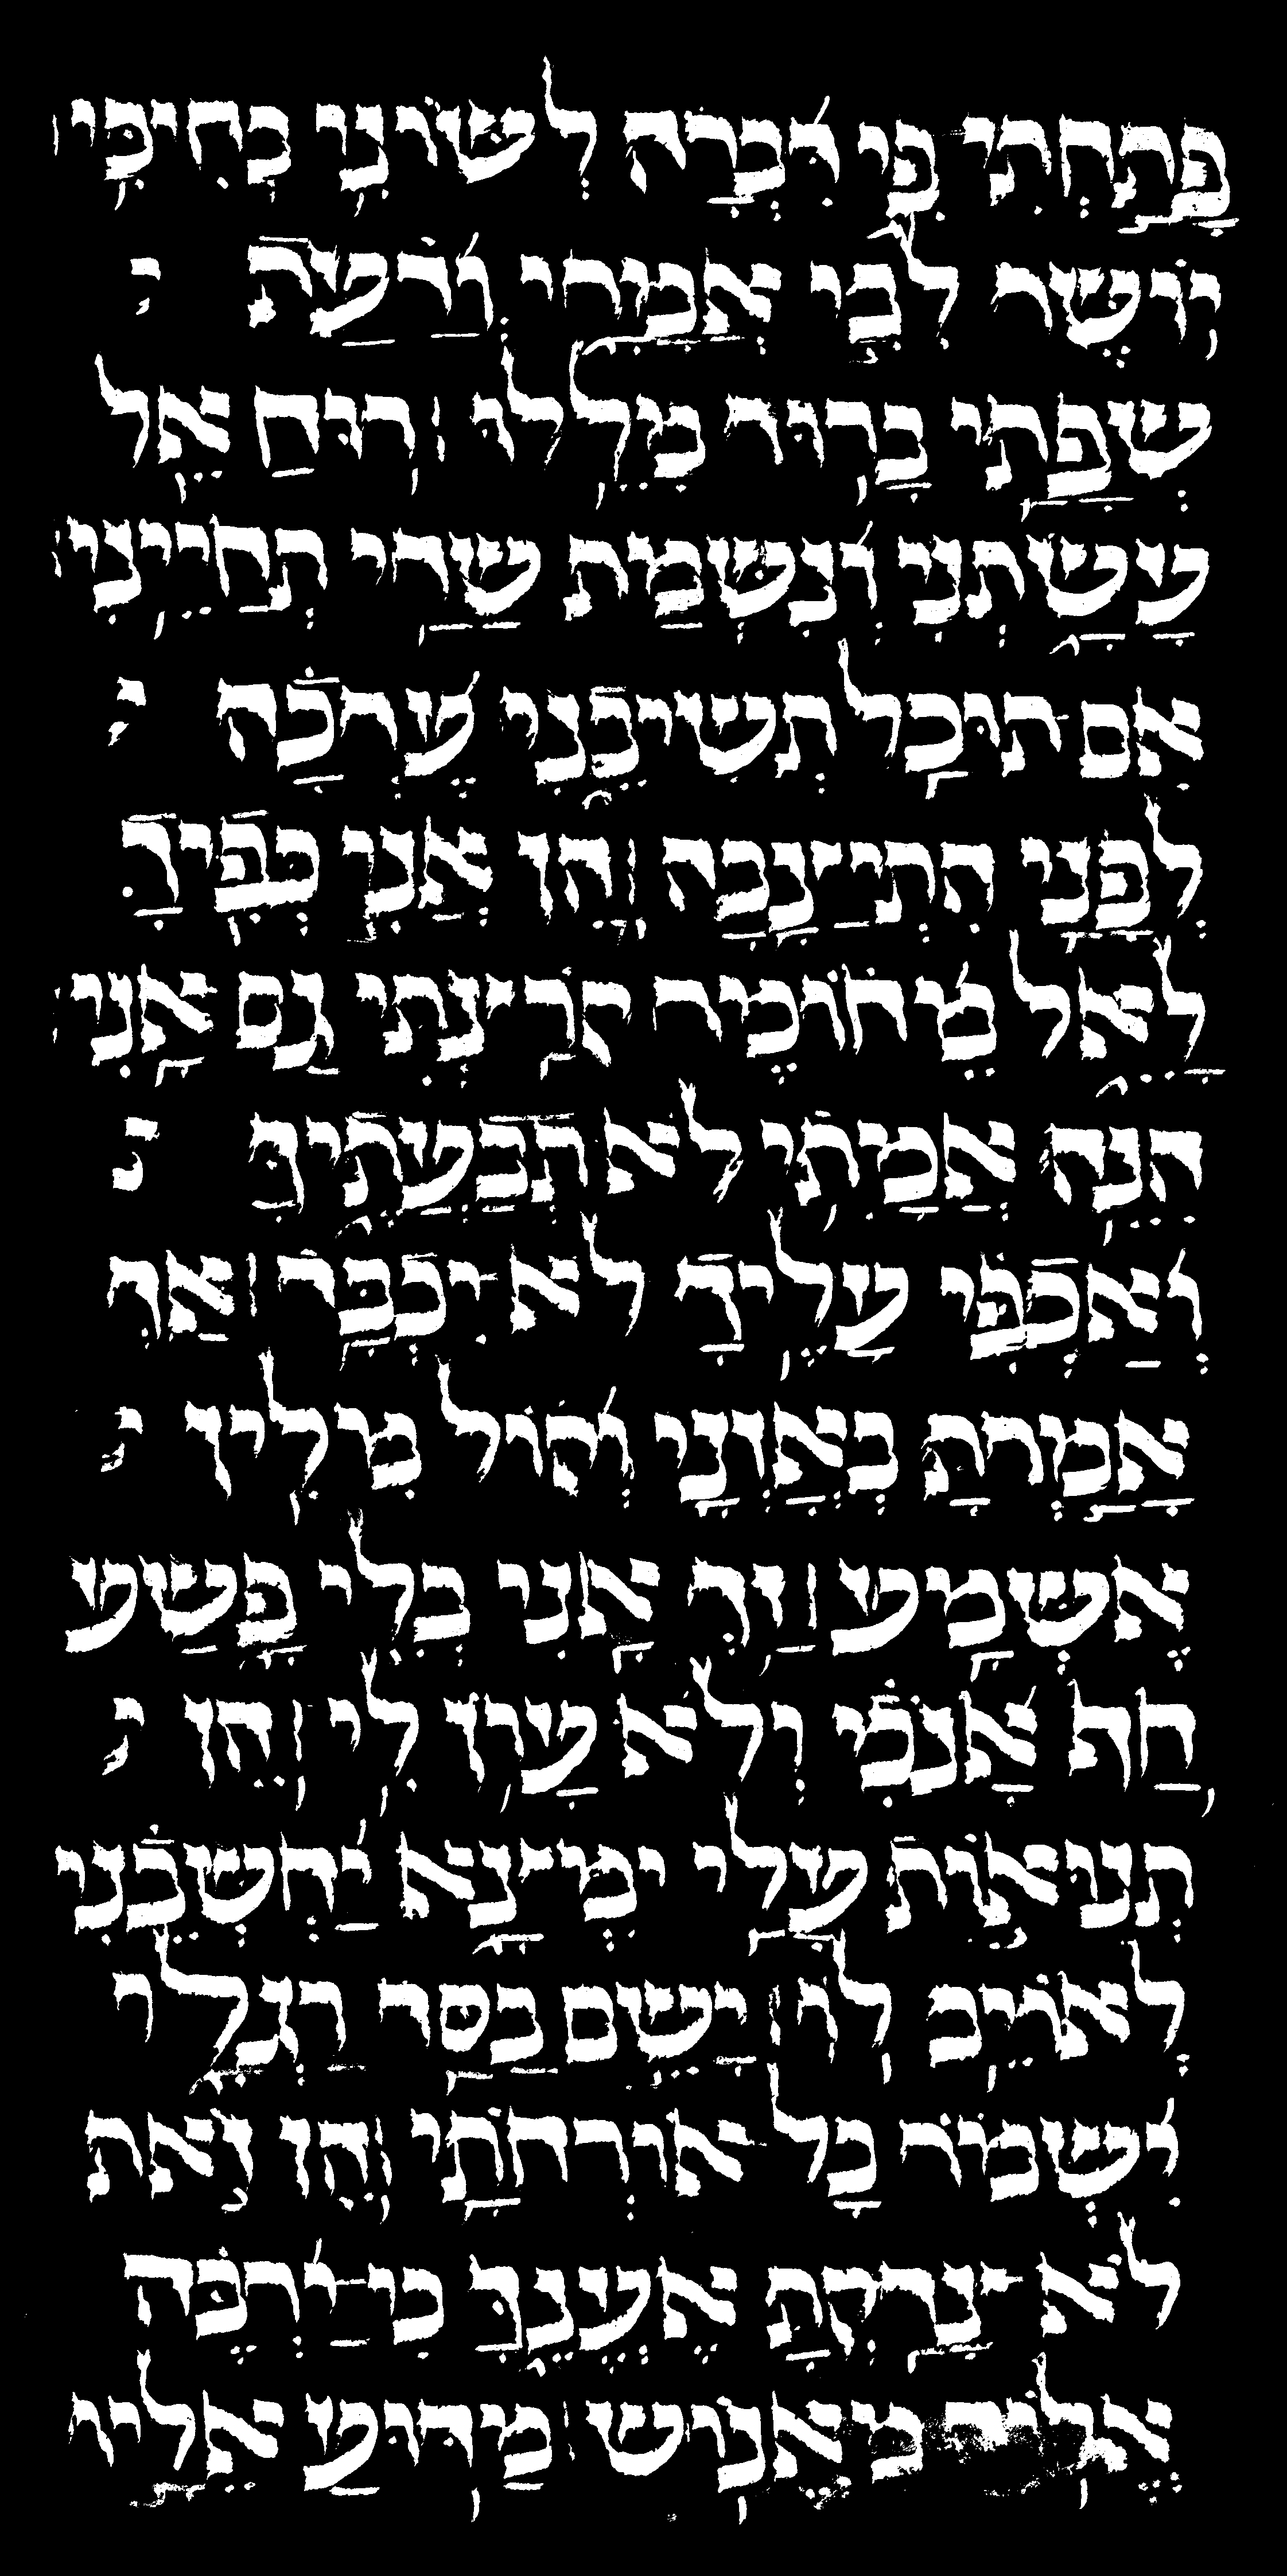 פָּתַחְתִּי פִי דִּבְּרָה לְשׁוֹנִי בְחִיכִּי
יוֹשֶׁר לִבִּי אֲמָרַי וְדַעַת
שְׂפָתַי בָּרוּר מִלֵּלוּ רוּחַ אֵל
עָשָׂתְנִי וְנִשְׁמַת שַׁדַּי תְּחַיֵּינִי
אִם תּוּכַל תְּשִׁיבֵנִי עֶרְכָה
לְפָנַי הִתְיַצָּבָה הֵן אֲנִי כְּפִיךָ
לָאֵל מֵחוֹמֶר קֹרַצְתִּי גַם אָנִי
הִנֵּה אֵמָתִי לֹא תְבַעֲתֶךָּ
וְאַכְפִּי עָלֶיךָ לֹא יִכְבָּד אַךְ
אָמַרְתָּ בְאָזְנָי וְקוֹל מִלִּין
אֶשְׁמָע זַךְ אֲנִי בְּלִי פָשַׁע
חַף אָנֹכִי וְלֹא עָוֹן לִי הֵן
תְּנוּאוֹת עָלַי יִמְצָא יַחְשְׁבֵנִי
לְאוֹיֵב לוֹ יָשֵׂם בַּסַּד רַגְלָי
יִשְׁמוֹר כָּל אוֹרְחֹתָי הֵן זֹאת
לֹא צָדַקְתָּ אֶעֱנֶךָּ כִּי יִרְבֶּה
אֱלוֹהַּ מֵאֱנוֹשׁ מַדּוּעַ אֵלָיו